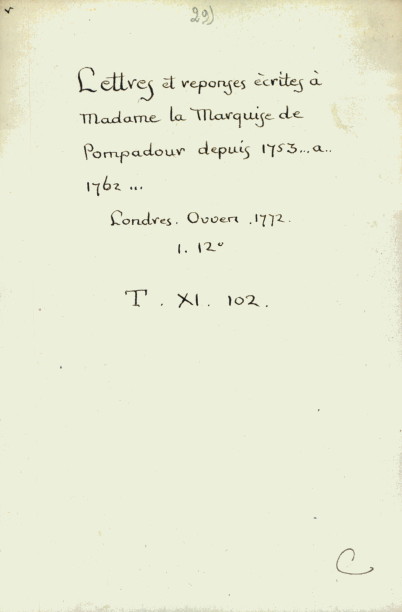 29)
Lettres et reponses ècrites à
Madame la Marquise de
Pompadour depuis 1753...a..
1762 ...
Londres. Owen .1772.
1. 12º
T. XI. 102.
C